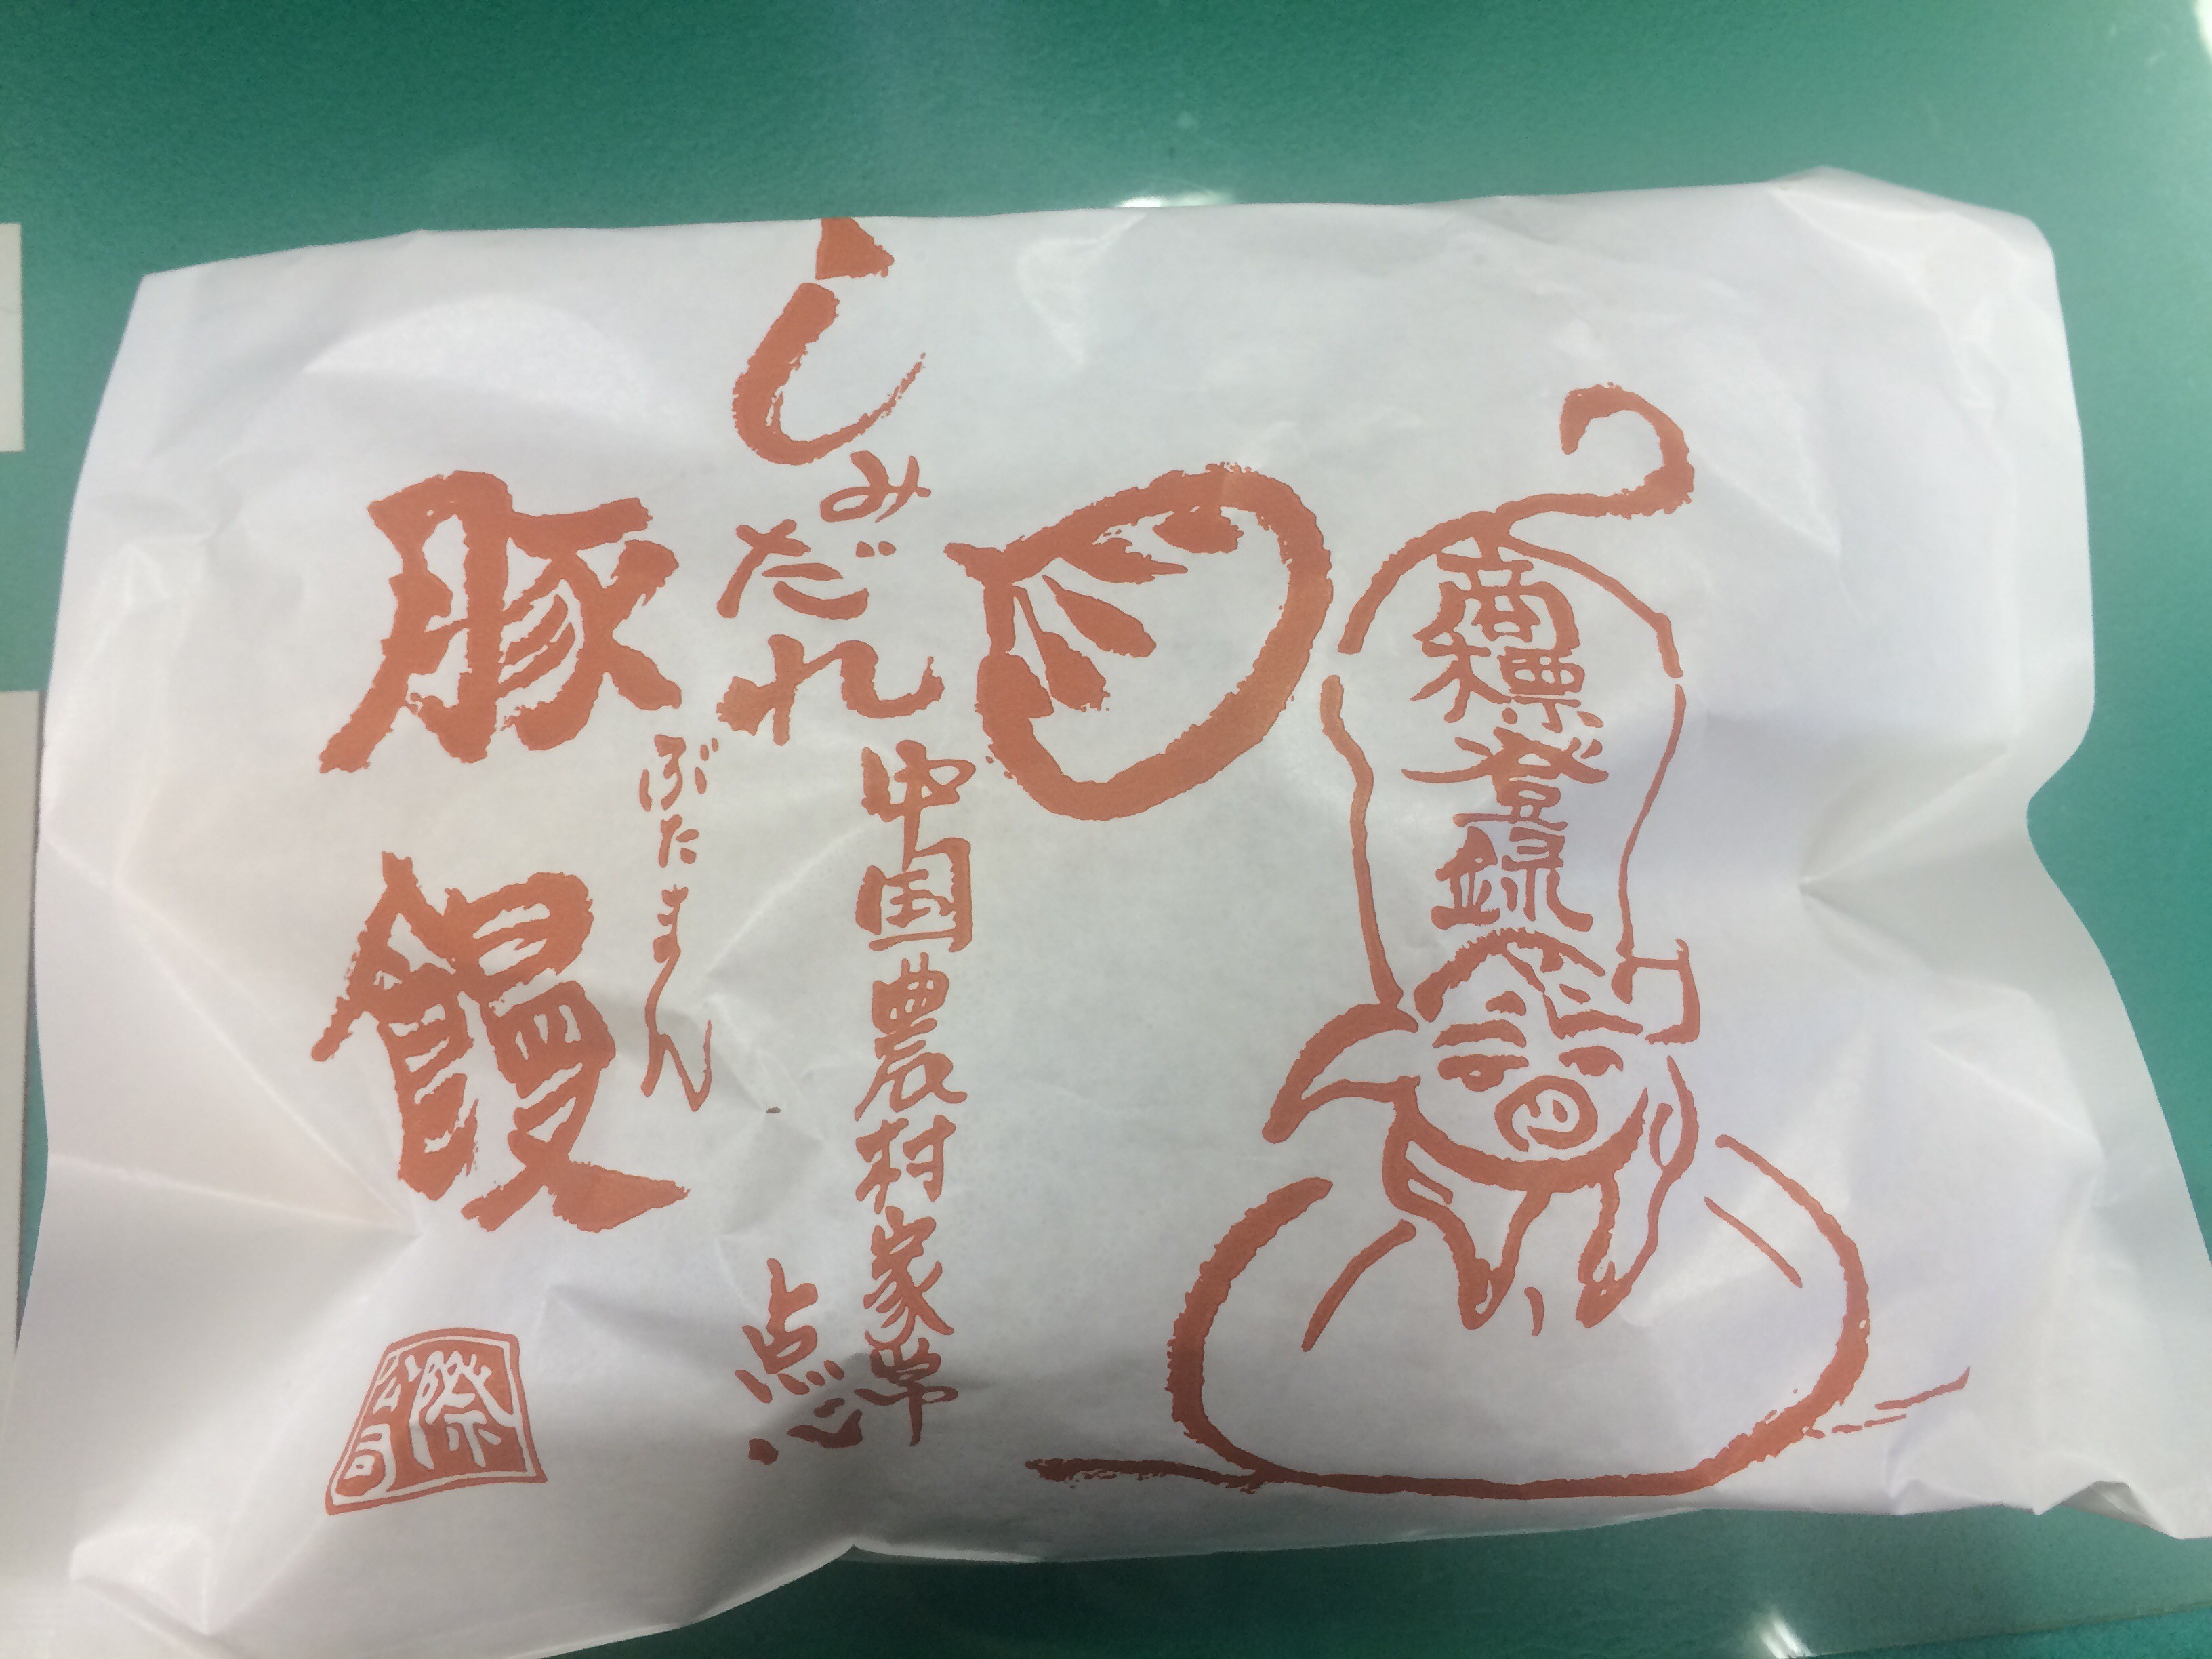 商標登録
しみだれ
中国農村家常
点心
ぶたまん
豚饅
公司